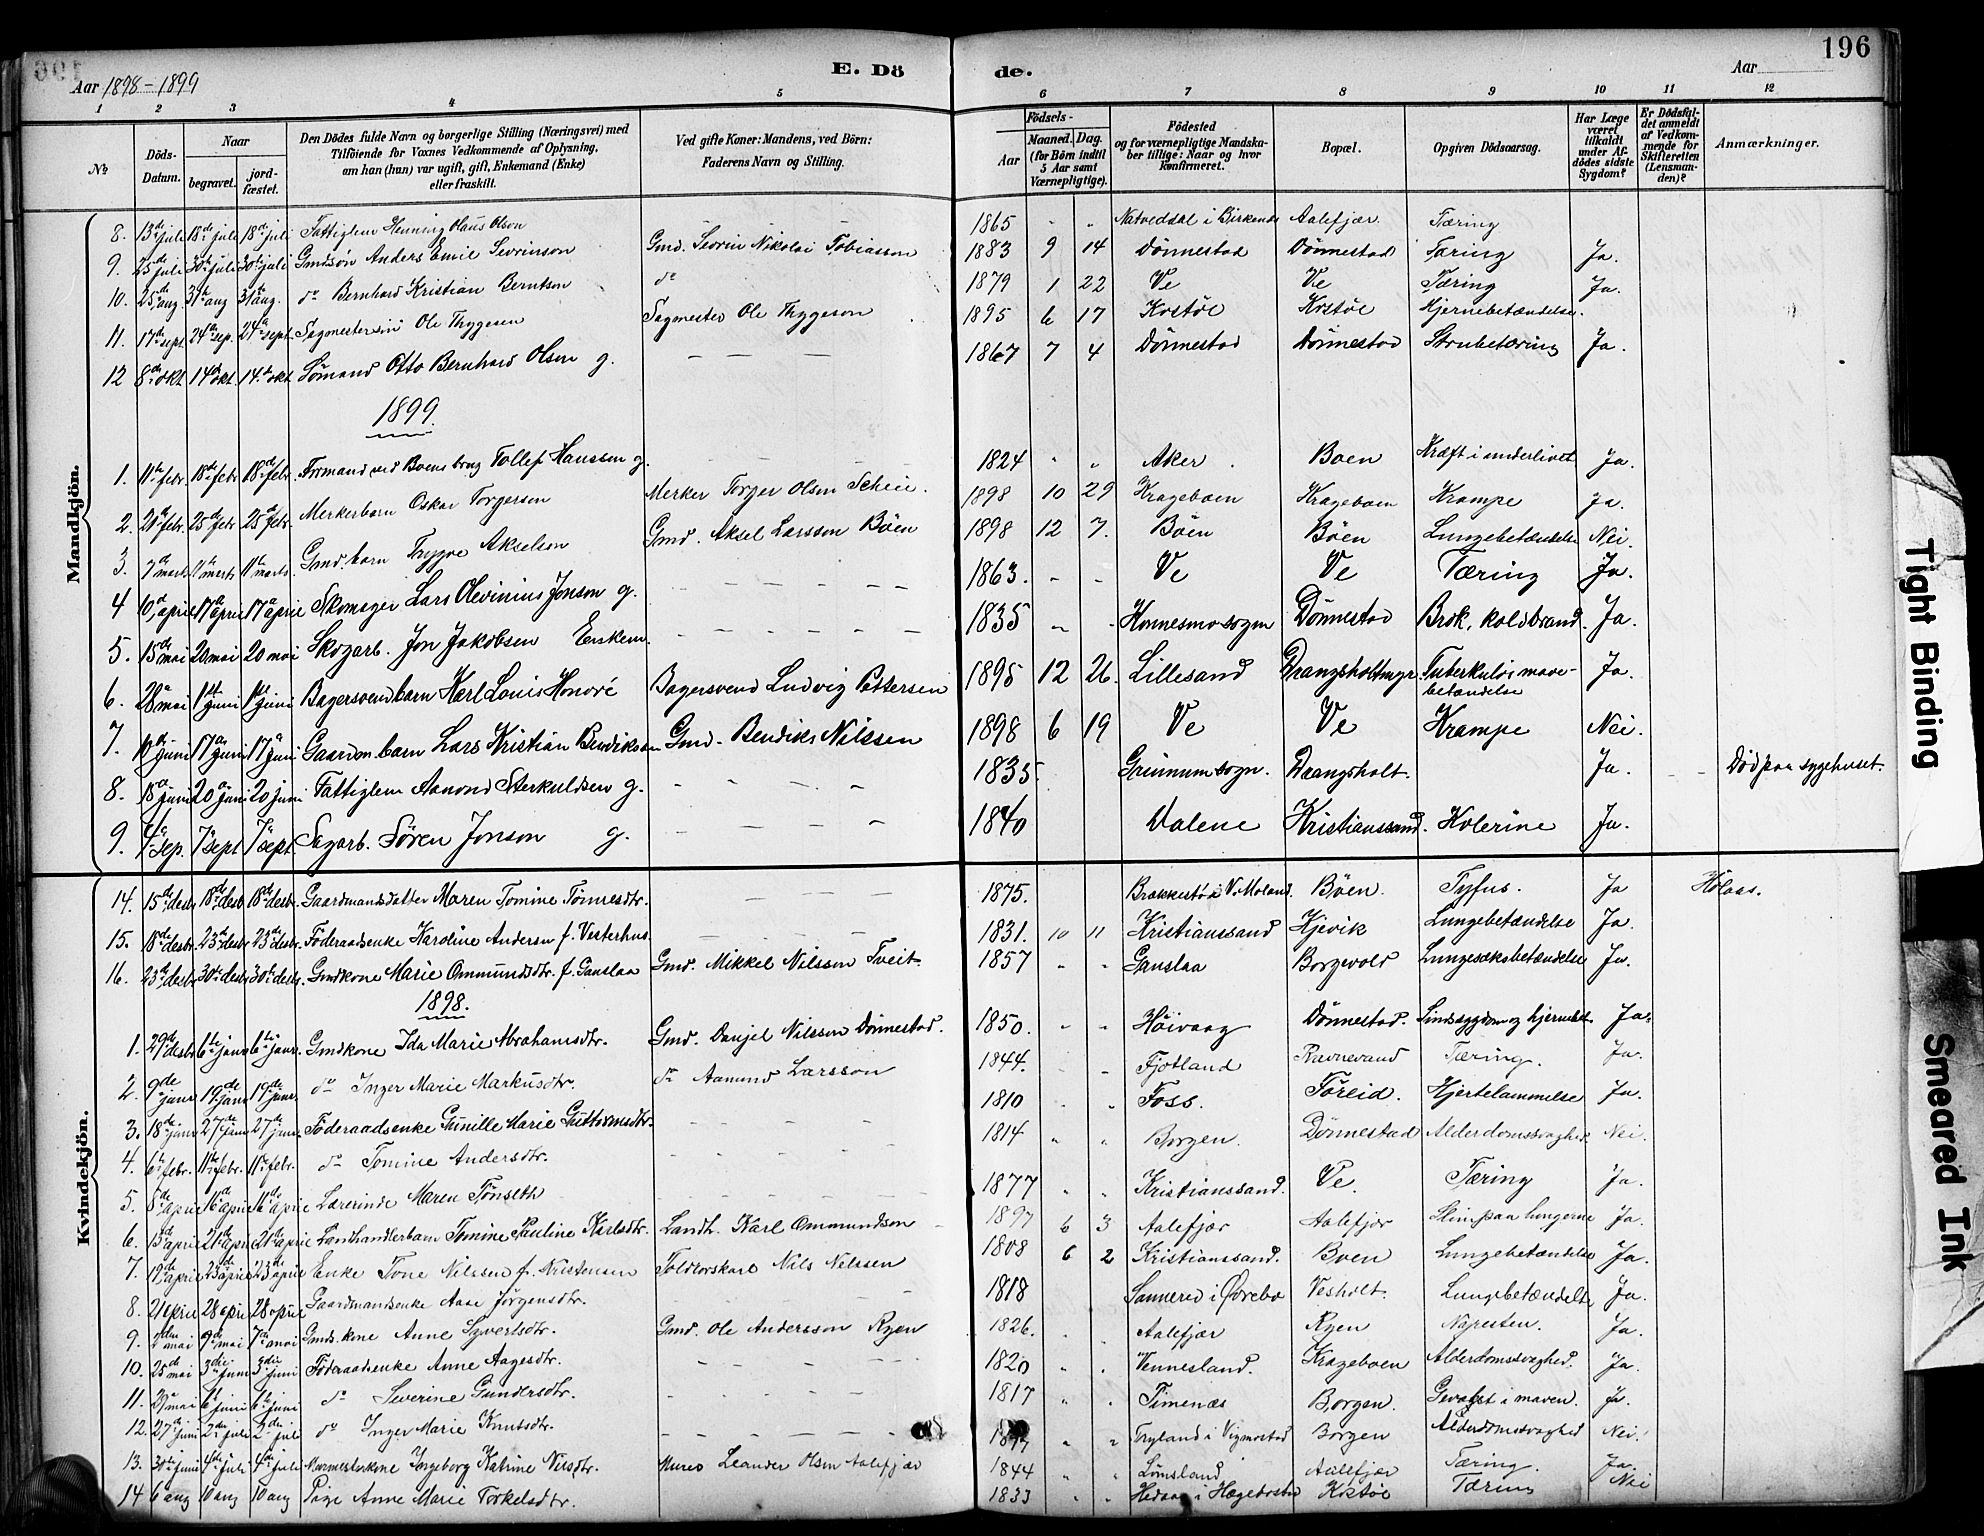 Aar 1898-1899
E. Dö
de.
Aar
196
1 2 3 4 5 6 7 8 9 10 11 12
No
Döds-Datum.
Naar
begravet.
jord-fæstet.
Den Dödes fulde Navn og borgerlige Stilling (Næringsvei) med
Tilföiende for Voxnes Vedkommende af Oplysning,
om han (hun) var ugift, gift, Enkemand (Enke)
eller fraskilt.
Ved gifte Koner: Mandens, ved Börn:
Faderens Navn og Stilling.
Födsels-
Aar
Maaned. Dag.
(for Börn indtil
5 Aar samt
Værnepligtige).
Födested
og for værnepligtige Mandska-
ber tillige: Naar og hvor
konfirmeret.
Bopæl.
Opgiven Dödsaarsag.
Har Læge
været
tilkaldt
under Af-
dödes sidste
Sygdom?
Er Dödsfal-
det anmeldt
af Vedkom-
mende for
Skifteretten
(Lensman-
den)?
Anmærkninger.
Mandkjön.
8. 13de juli 18de juli 18de juli Fattiglem Henning Olaus Olson 1865 " " Natvedsal i Birkenes Aalefjær Tæring
9. 25de juli 30te juli 30te juli Gmdsön Anders Emil Sevrinson Gmd. Sevrin Nikolai Tobiasson 1883 9 14 Dönnestad Dönnestad Tæring Ja.
10. 25de aug 31te aug 31te aug. do Bernhard Kristian Berntson do 1879 1 22 Ve Ve Tæring Ja.
11. 17de sept 24de sep. 24de sept. Sagmestersön Ole Thygesen Sagmester Ole Thygeson 1895 6 17 Kostöl Kostöl Hjernebetændelse.
12 8de okt 14de okt. 14de okt Sömand Otto Bernhard Olsen g. — — — 1867 7 4 Dönnestad Dönnestad Strubetæring Ja.
1899.
1. 11te febr. 18de febr 18de febr. Formand ved Boens brug Tollef Hanssen g. — — — 1824 " " Aker. Boen Kræft i underlivet Ja.
2. 21de febr. 25de febr 25de febr. Merkerbarn Oskar Torgersen Merker Torger Olsen Scheie. 1898 10 29 Krageboen Krageboen Krampe Ja.
3. 7de marts 11te marts 11te marts. Gmd.barn Trygve Akselson Gmd. Aksel Larsson Böen 1898 12 7. Böen Böen Lungebetændelse Nei.
4 10de april 17de april 17de april Skomager Lars Olevinius Jonson g. — — — 1863. - - Ve Ve Tæring Ja.
5. 15de mai 20 mai 20 mai Skogarb. Jon Jakobsen Enkem. — — — 1835 - - Konnesmo sogn Dönnestad Brok, koldbrand. Ja.
6. 28de mai 1ste juni 1ste juni Bagersvendbarn Karl Louis Honoré Bagersvend Ludvig Pettersen 1898 12 26. Lillesand Drangsholtmyr. Tuberkulös mave-
betændelse Ja.
7. 10de juni 17de juni 17de juni Gaardm.barn Lars Kristian Bendiksen Gmd. Bendiks Nilssen 1898 6 19 Ve Ve Krampe Nei.
8. 15de juni 20 juni 20 juni Fattiglem Aanond Sterkuldsen g. - - - 1835. Grinnum sogn. Drangsholt. Ja. Död paa sygehuset.
9. 4de sep. 7de sept 7de sept Sagarb. Sören Jonson g. — - - - 1840 Valene Kristianssand. Kolerine Ja.
Kvindekjön.
14. 15de desbr 18de desbr 18de desbr. Gaardmandsdatter Maren Tomine Tönnesdtr. — — — 1875. Brokkestö i V. Moland. Böen. Tyfus. Ja
15. 18de desbr 23de desbr 23de desbr. Föderaadsenke Karoline Andersen f. Vesterhus. — — — 1831. 10 11 Kristianssand Kjevik Lungebetændelse Ja.
16. 23de desbr 30te desbr 30te desbr. Gmdkone Marie Ommundsdtr. f. Ganslaa Gmd. Mikkel Nilsson Tveit. 1857 " " Ganslaa Borgevold Lungesæksbetændelse Ja.
1898.
1. 29de desbr 6te janr 6te janr. Gmdkone Ida Marie Abrahamsdtr. Gmd. Danjel Nilsson Dönnestad. 1850. " " Höivaag Dönnestad. Ja.
2. 9de janr 19de janr 19de janr. do Inger Marie Markusdtr. do Aamund Larsson 1844. - Fjotland Ravnevand Tæring. Ja.
3. 18de janr 27de janr 27de janr. Föderaadsenke Gunille Marie Guttormsdtr. - - - 1810 " " Foss. Föreid. Hjertelammelse Ja.
4. 6te febr. 11te febr. 11te febr. do Tomine Andersdtr. - - - 1814 " " Borgen. Dönnestad Alderdomssvaghed Nei.
5. 8de april 16de april 16de april Lærerinde Maren Tönseth - - - 1877 " " Kristianssand. Ve. Tæring Ja.
6. 15de april 21de april 21de april Landhandlerbarn Tomine Pauline Karlsdtr. Landh. Karl Ommundson 1897 6 3 Aalefjær Aalefjær Slim paa lungerne Ja.
7. 19de april 23de april 23de april Enke Tone Nilssen f. Kristensen Toldtorskarl Nils Nilssen 1808 6 2 Kristianssand. Boen Lungebetændelse Ja.
8. 21 april 28 april 28 april Gaardmandsenke Aase Jörgensdtr. 1818 Sannered i Övrebö Vesholt. Lungebetændelse Ja.
9. mai 9de mai 7de mai Gmds.kone Anne Syvertsdtr. Gmd. Ole Andersson Ryen 1826. " Aalefjær Ryen Ja.
10. 25de mai 3die juni 3die juni Föderaadsenke Anne Aagesdtr. - - - 1820 " . Vennesland. Krageboen Alderdomssvaghed. Ja.
11. mai 6te juni 6te juni do Severine Gundersdtr. - - - 1817 " . Timenæs Borgen. Gevækst i maven. Ja.
12. 27de juni 2den juli 2den juli do Inger Marie Knutsdtr. - - - " " Tryland i Vigmostad Borgen Alderdomssvaghed Nei.
13. 30te juni 4de juli 4de juli Murmesterkone Ingeborg Katrine Nilsdtr. Murer Leander Olsen Aalefjær 1844 " " Lömsland Aalefjær Tæring. Ja.
14 6 aug 10 aug 10 aug Pige Anne Marie Torkelsdtr. 1833 " " i Hægebostad Kostöl Tæring Nei
Tight Binding
Smeared Ink